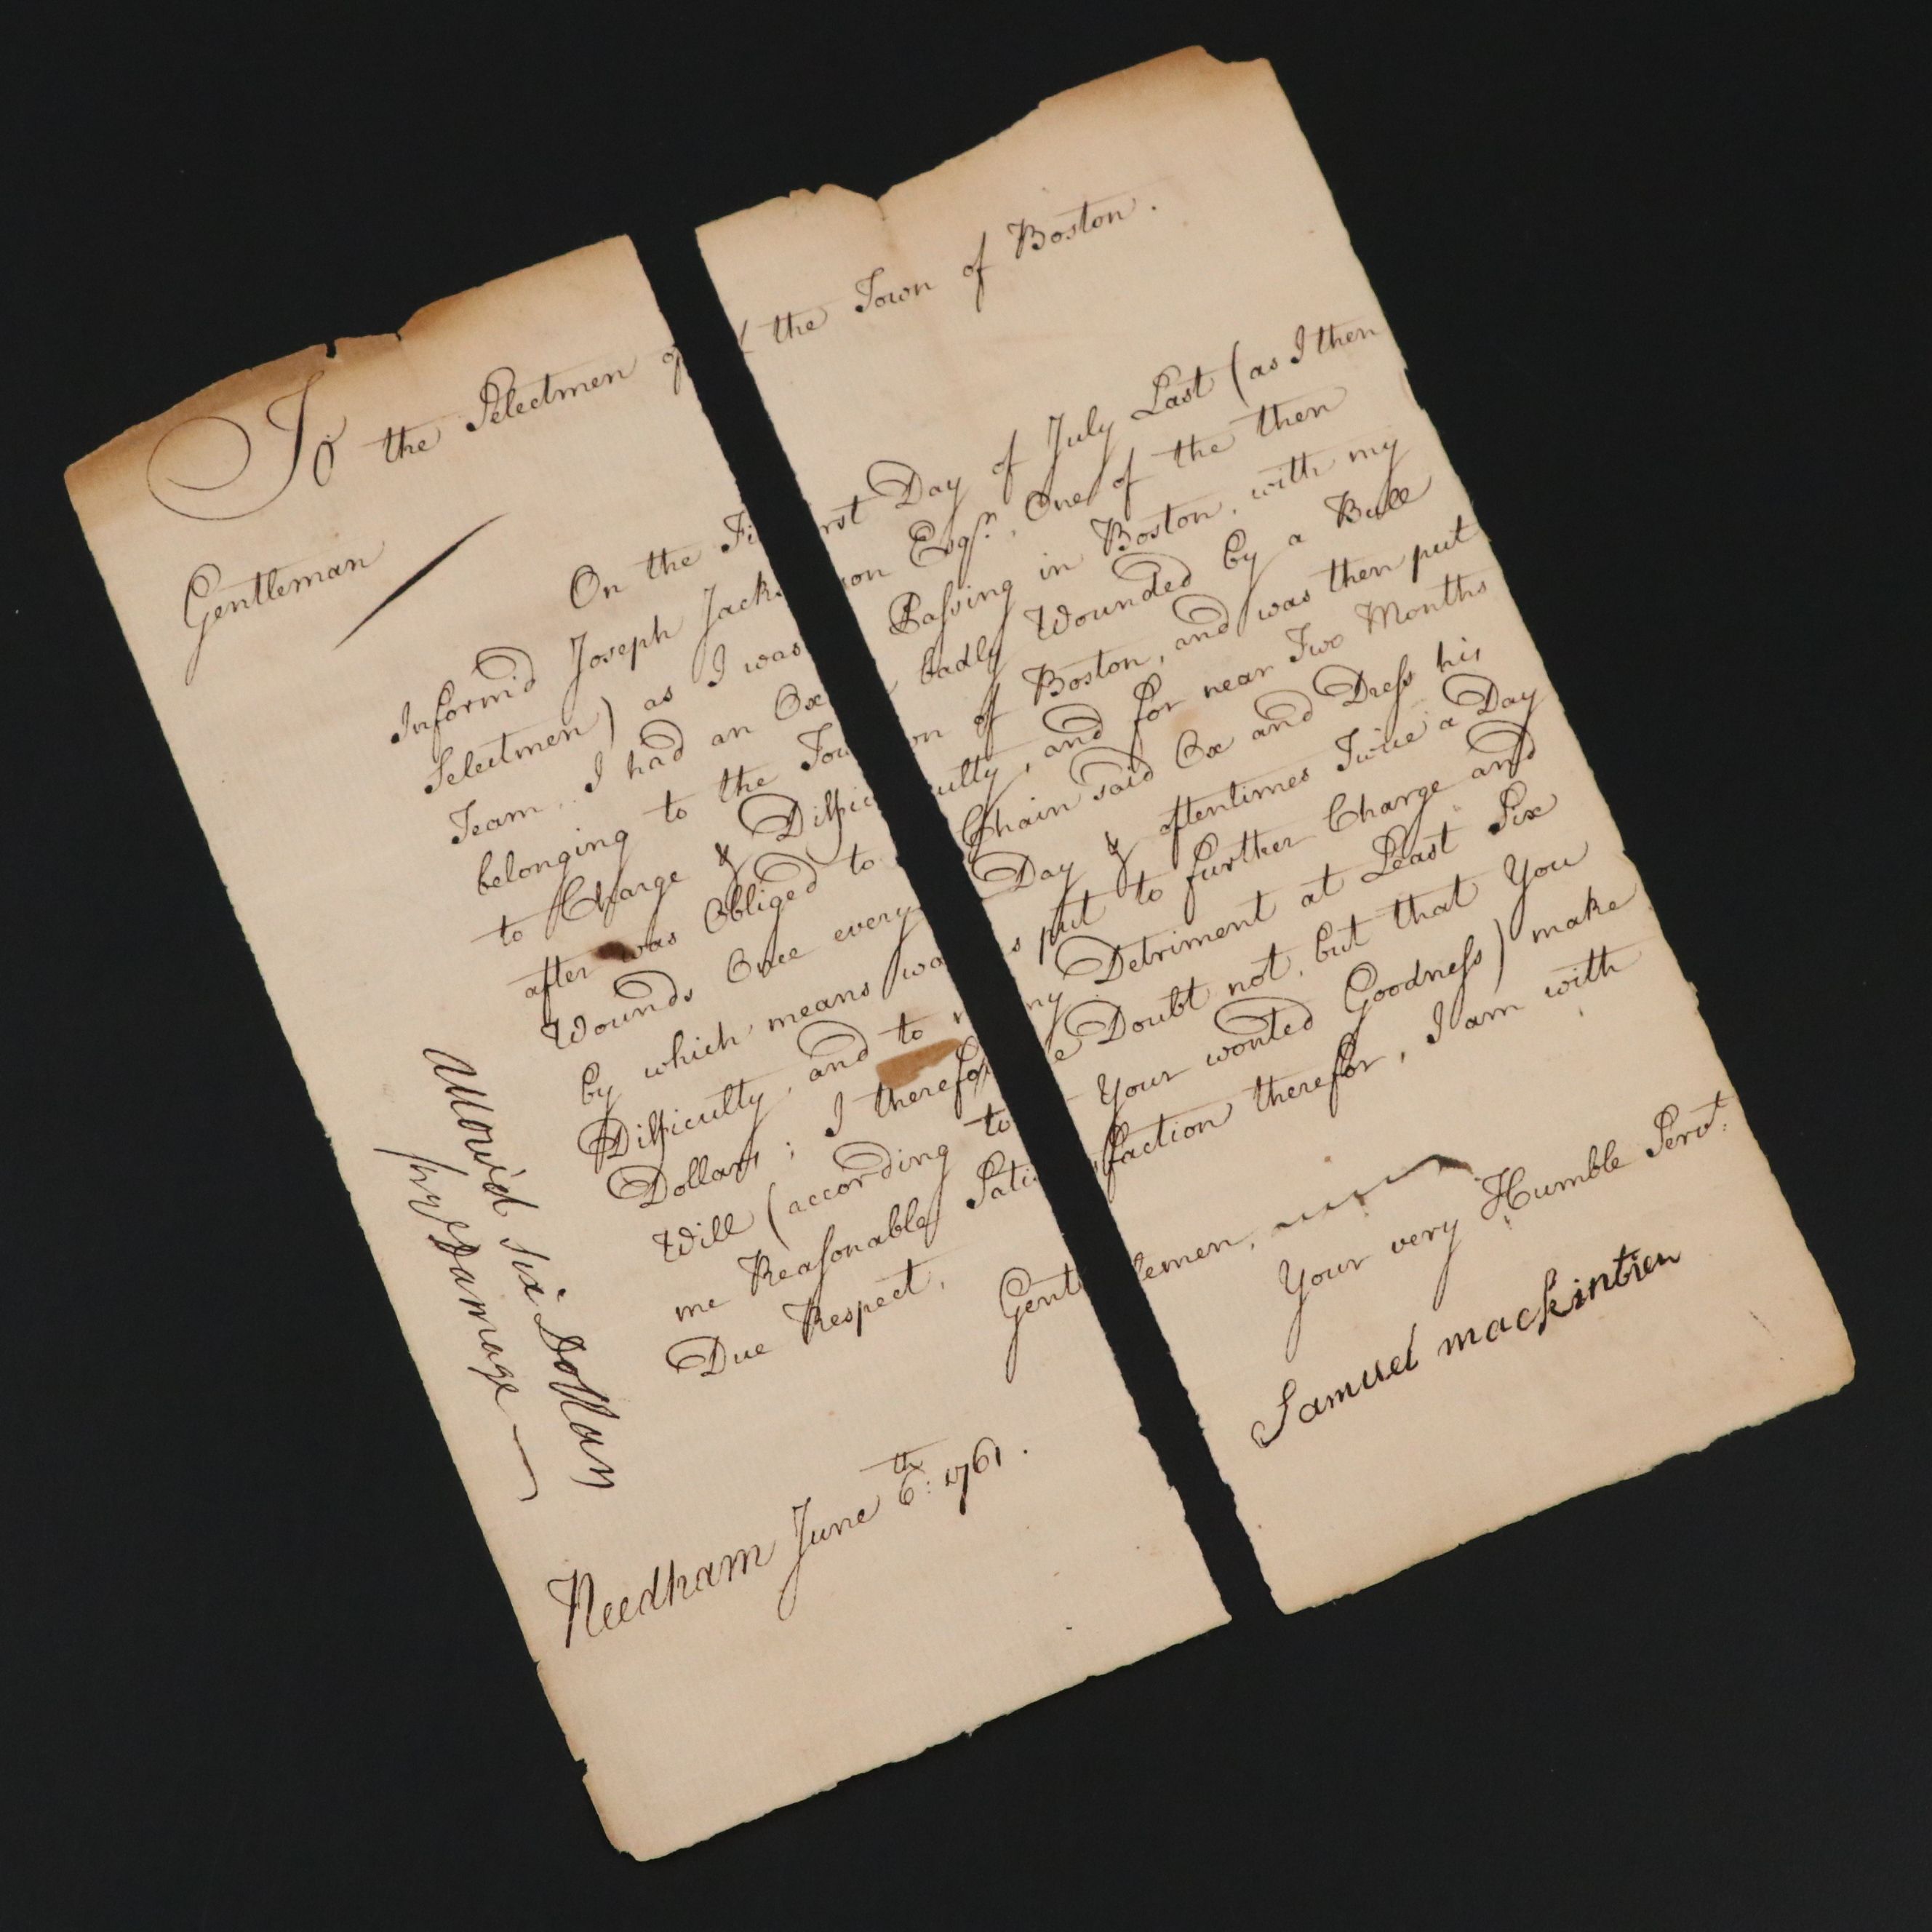 To the Selectmen of the Town of Boston.
Gentleman
On the First Day of July Last (as I then
Inform'd Joseph Jackson Esqr. One of the then
Selectmen) as I was Passing in Boston, with my
Team, I had an Ox badly Wounded by a Bull
belonging to the Town of Boston, and was then put
to Charge & Difficulty, and for near Two Months
after was Obliged to Chain said Ox and Dress his
Wounds Once every Day & oftentimes Twice a Day
by which means was put to further Charge and
Difficulty, and to my Detriment at Least Six
Dollars; I therefore Doubt not, but that You
Will (according to Your wonted Goodness) make
me Reasonable Satisfaction therefor, I am with
Due Respect,
Gentlemen,
Your very Humble Servt.
Samuel mackintier
Needham June 6th: 1761.
Allow'd six Dollars
his Damage